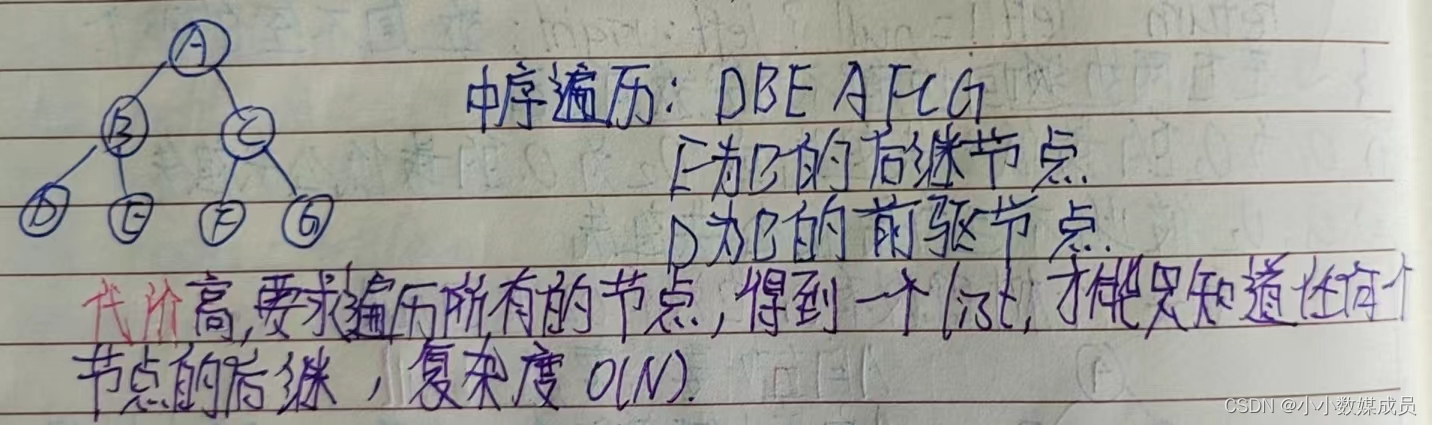 A
中序遍历：DBE A FCG
B C
E为B的后继节点.
D E F G
D为B的前驱节点.
代价高,要求遍历所有的节点,得到一个list,才能知道任何个
节点的后继,复杂度O(N).
CSDN @小小数媒成员